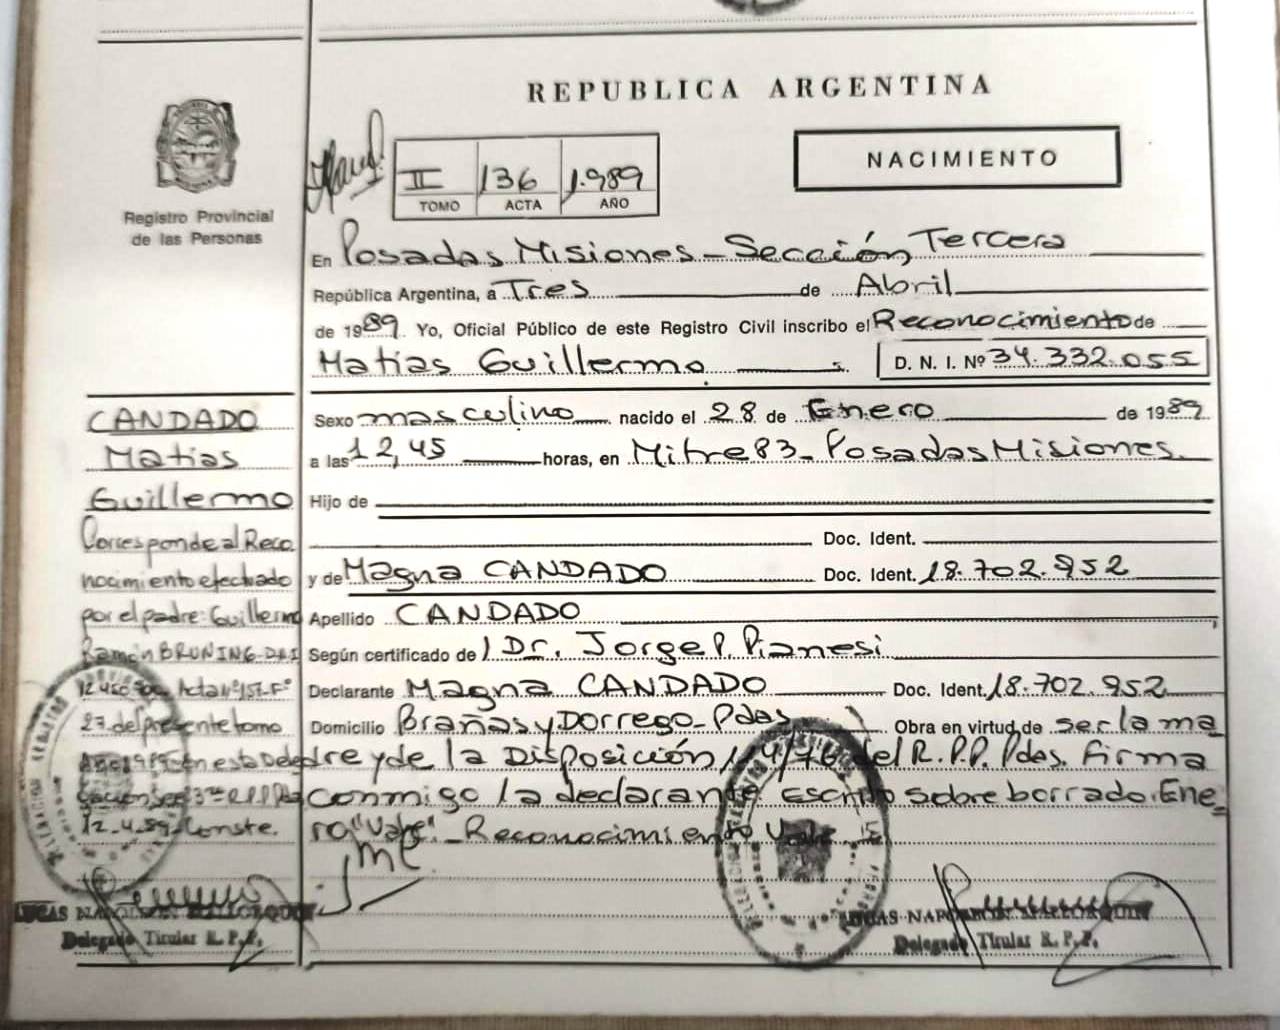 REPUBLICA ARGENTINA
NACIMIENTO
II 136 1.989
TOMO ACTA AÑO
Registro Provincial
de las Personas
En Posadas Misiones - Sección Tercera
República Argentina, a Tres de Abril
de 1989. Yo, Oficial Público de este Registro Civil inscribo el Reconocimiento de
Matias Guillermo D. N. I. Nº 34.332.055
Sexo masculino nacido el 28 de Enero de 1989
a las 12,45 horas, en Mitre 83 - Posadas Misiones.
Hijo de
Doc. Ident.
y de Magna CANDADO Doc. Ident. 18.702.952
Apellido CANDADO
Según certificado de Dr. Jorge P. Pianesi
Declarante Magna CANDADO Doc. Ident. 18.702.952
Domicilio Brañas y Dorrego - Pdas Obra en virtud de ser la ma
dre y de la Disposición 114/76 del R.P.P. Pdas. Firma
conmigo la declarante Escrito sobre borrado: Ene_
ro "Vale". - Reconocimiento Vale
CANDADO
Matias
Guillermo
Corresponde al Reco
nocimiento efectuado
por el padre: Guillermo
Ramón BRUNING - D.N.I
Acta Nº 157 - Fº
27 del presente tomo
12-4-89 - Conste.
LUCAS NAPOLEON
Delegado Titular R. P. P.
LUCAS NAPOLEON
Delegado Titular R. P. P.